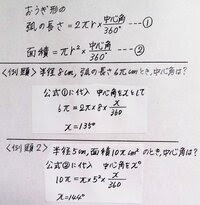 おうぎ形の
弧の長さ = 2πr × 中心角/360° ―①
面積 = πr² × 中心角/360° ―②
<例題1> 半径8cm, 弧の長さ6πcmのとき, 中心角は?
公式①に代入 中心角をx°として
6π = 2π×8×x/360
x = 135°
<例題2> 半径5cm, 面積10πcm²のとき, 中心角は?
公式②に代入 中心角をx°
10π = π×5²×x/360
x = 144°